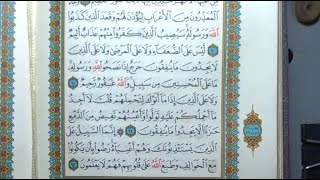 الْمُعَذِّرُونَ مِنَ الْأَعْرَابِ لِيُؤْذَنَ لَهُمْ وَقَعَدَ الَّذِينَ كَذَبُوا
اللَّهَ وَرَسُولَهُ سَيُصِيبُ الَّذِينَ كَفَرُوا مِنْهُمْ عَذَابٌ أَلِيمٌ
لَيْسَ عَلَى الضُّعَفَاءِ وَلَا عَلَى الْمَرْضَى وَلَا عَلَى الَّذِينَ
لَا يَجِدُونَ مَا يُنْفِقُونَ حَرَجٌ إِذَا نَصَحُوا لِلَّهِ وَرَسُولِهِ
مَا عَلَى الْمُحْسِنِينَ مِنْ سَبِيلٍ وَاللَّهُ غَفُورٌ رَحِيمٌ
وَلَا عَلَى الَّذِينَ إِذَا مَا أَتَوْكَ لِتَحْمِلَهُمْ قُلْتَ لَا أَجِدُ
مَا أَحْمِلُكُمْ عَلَيْهِ تَوَلَّوْا وَأَعْيُنُهُمْ تَفِيضُ مِنَ الدَّمْعِ
حَزَنًا أَلَّا يَجِدُوا مَا يُنْفِقُونَ إِنَّمَا السَّبِيلُ عَلَى
الَّذِينَ يَسْتَأْذِنُونَكَ وَهُمْ أَغْنِيَاءُ رَضُوا بِأَنْ يَكُونُوا
مَعَ الْخَوَالِفِ وَطَبَعَ اللَّهُ عَلَى قُلُوبِهِمْ فَهُمْ لَا يَعْلَمُونَ